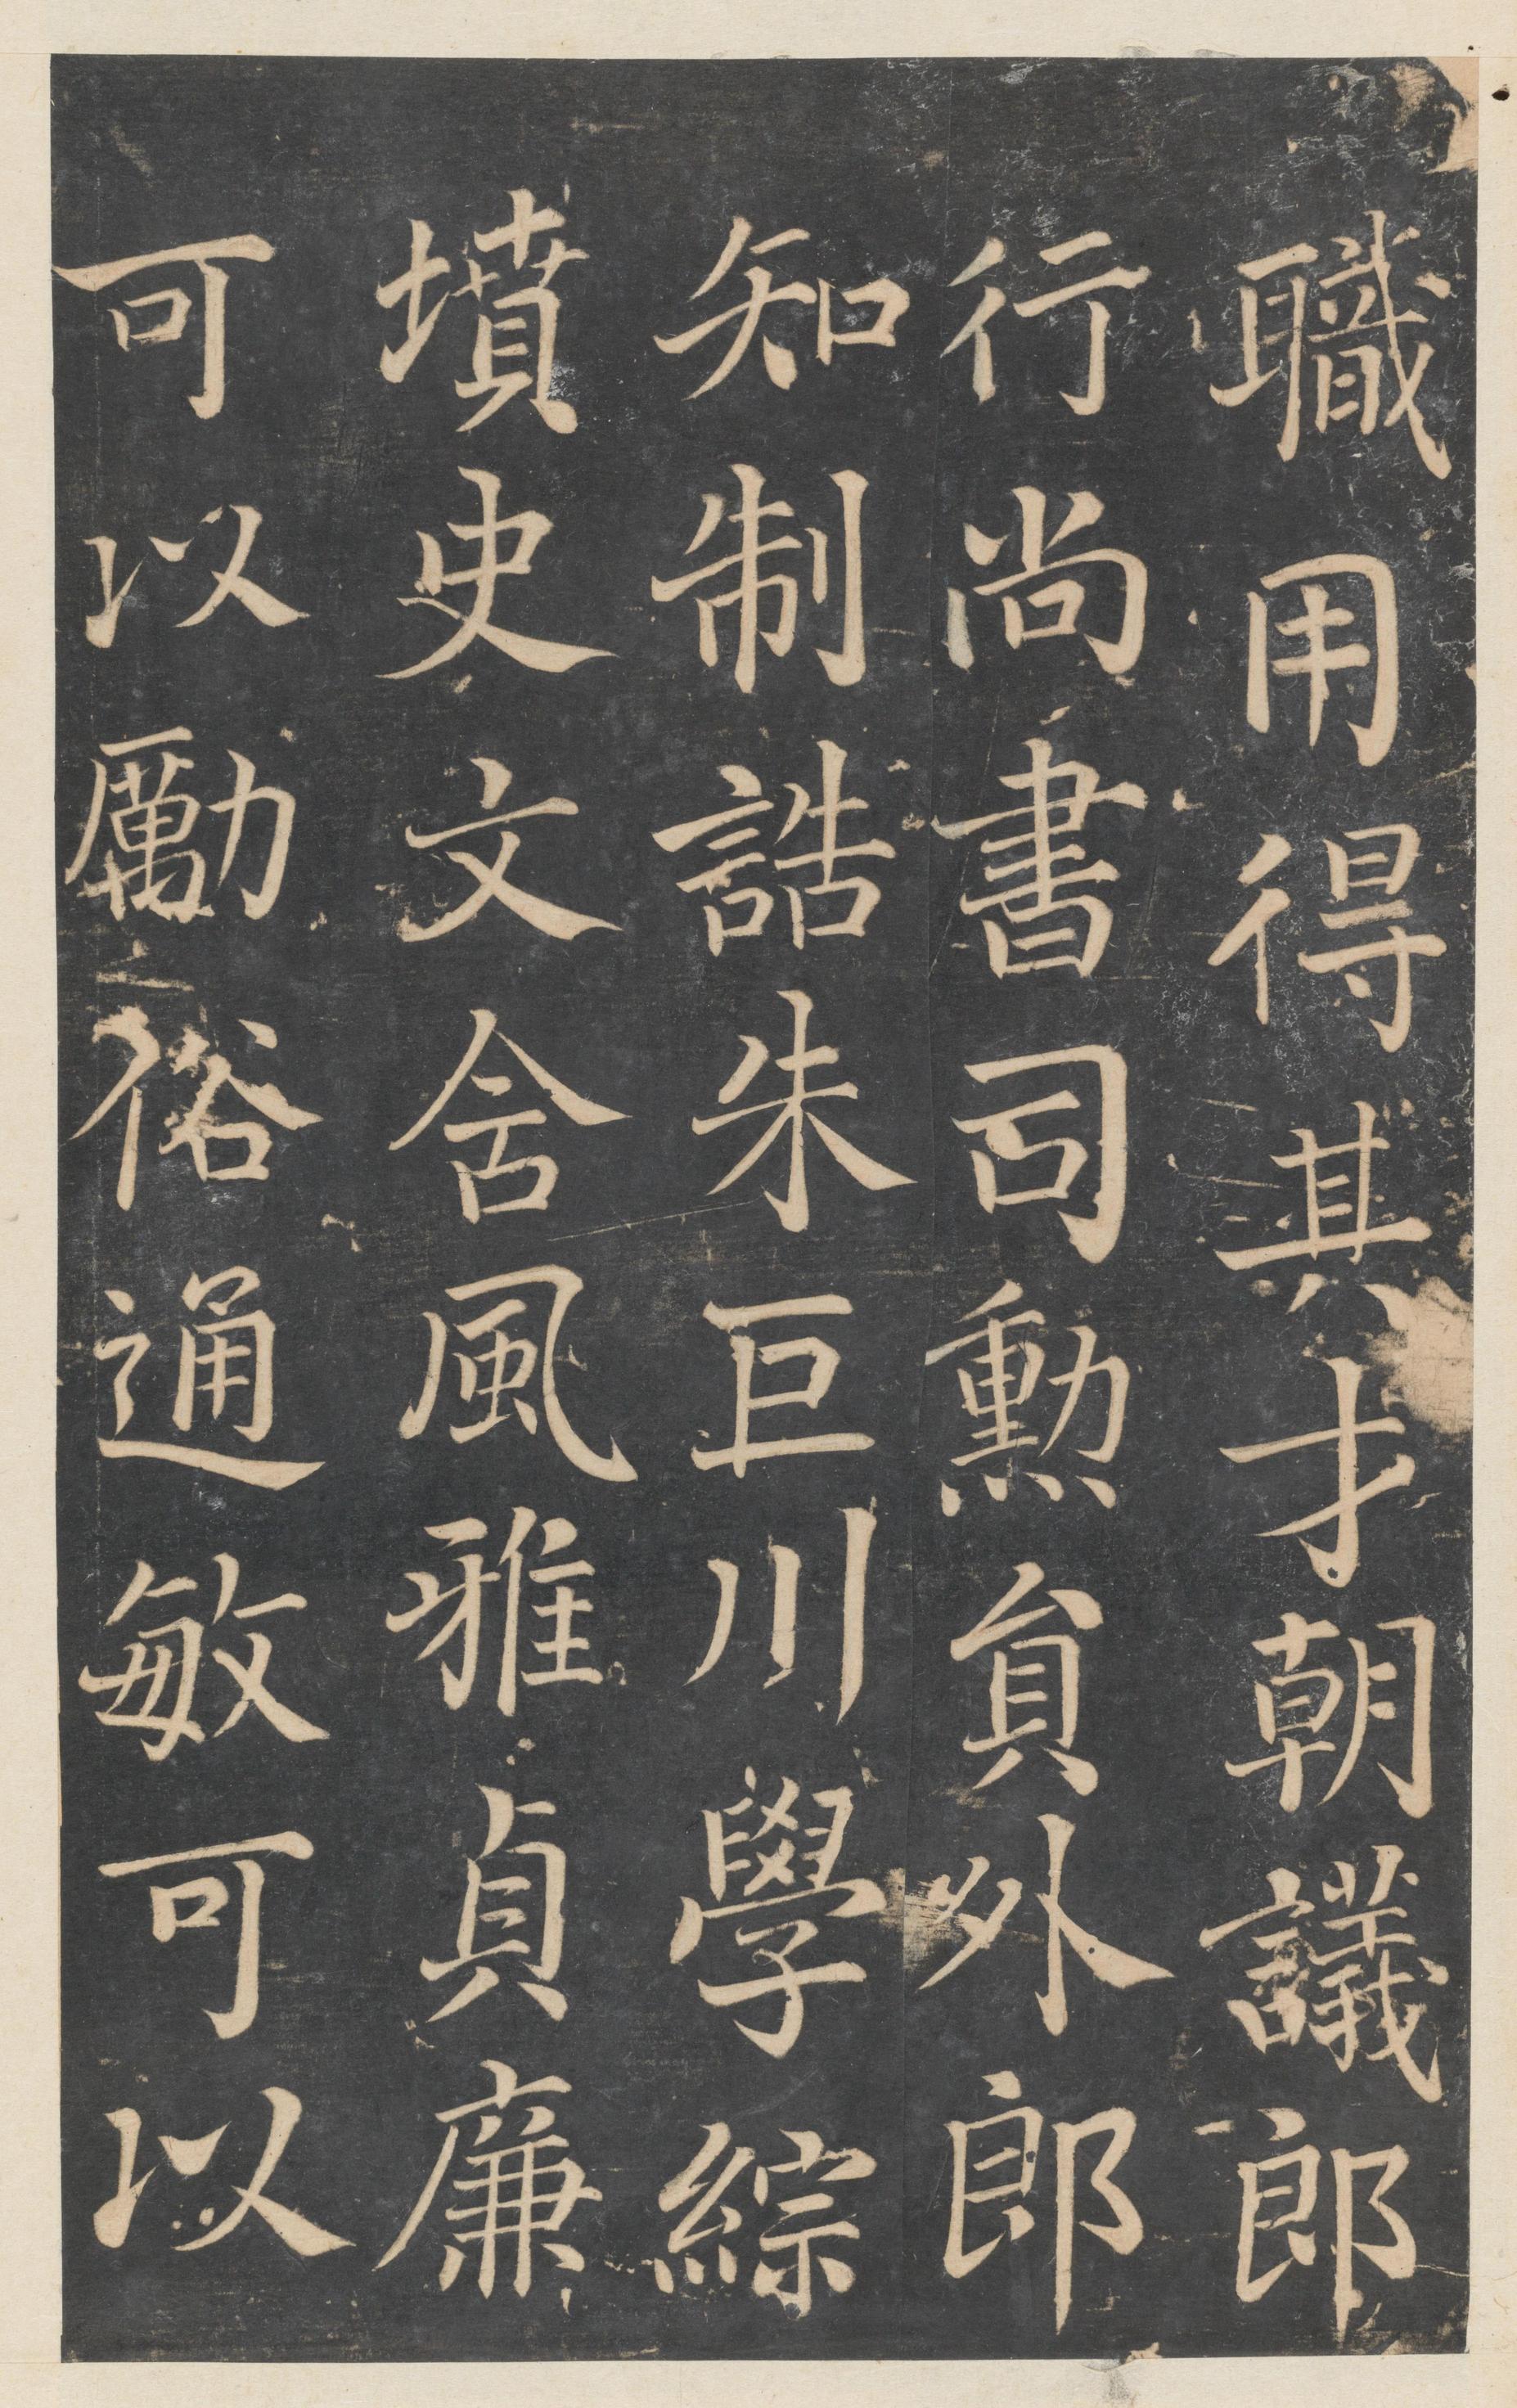 職用得其才朝議郎
行尚書司勲貟外郎
知制誥朱巨川學綜
墳史文含風雅貞廉
可以勵俗通敏可以